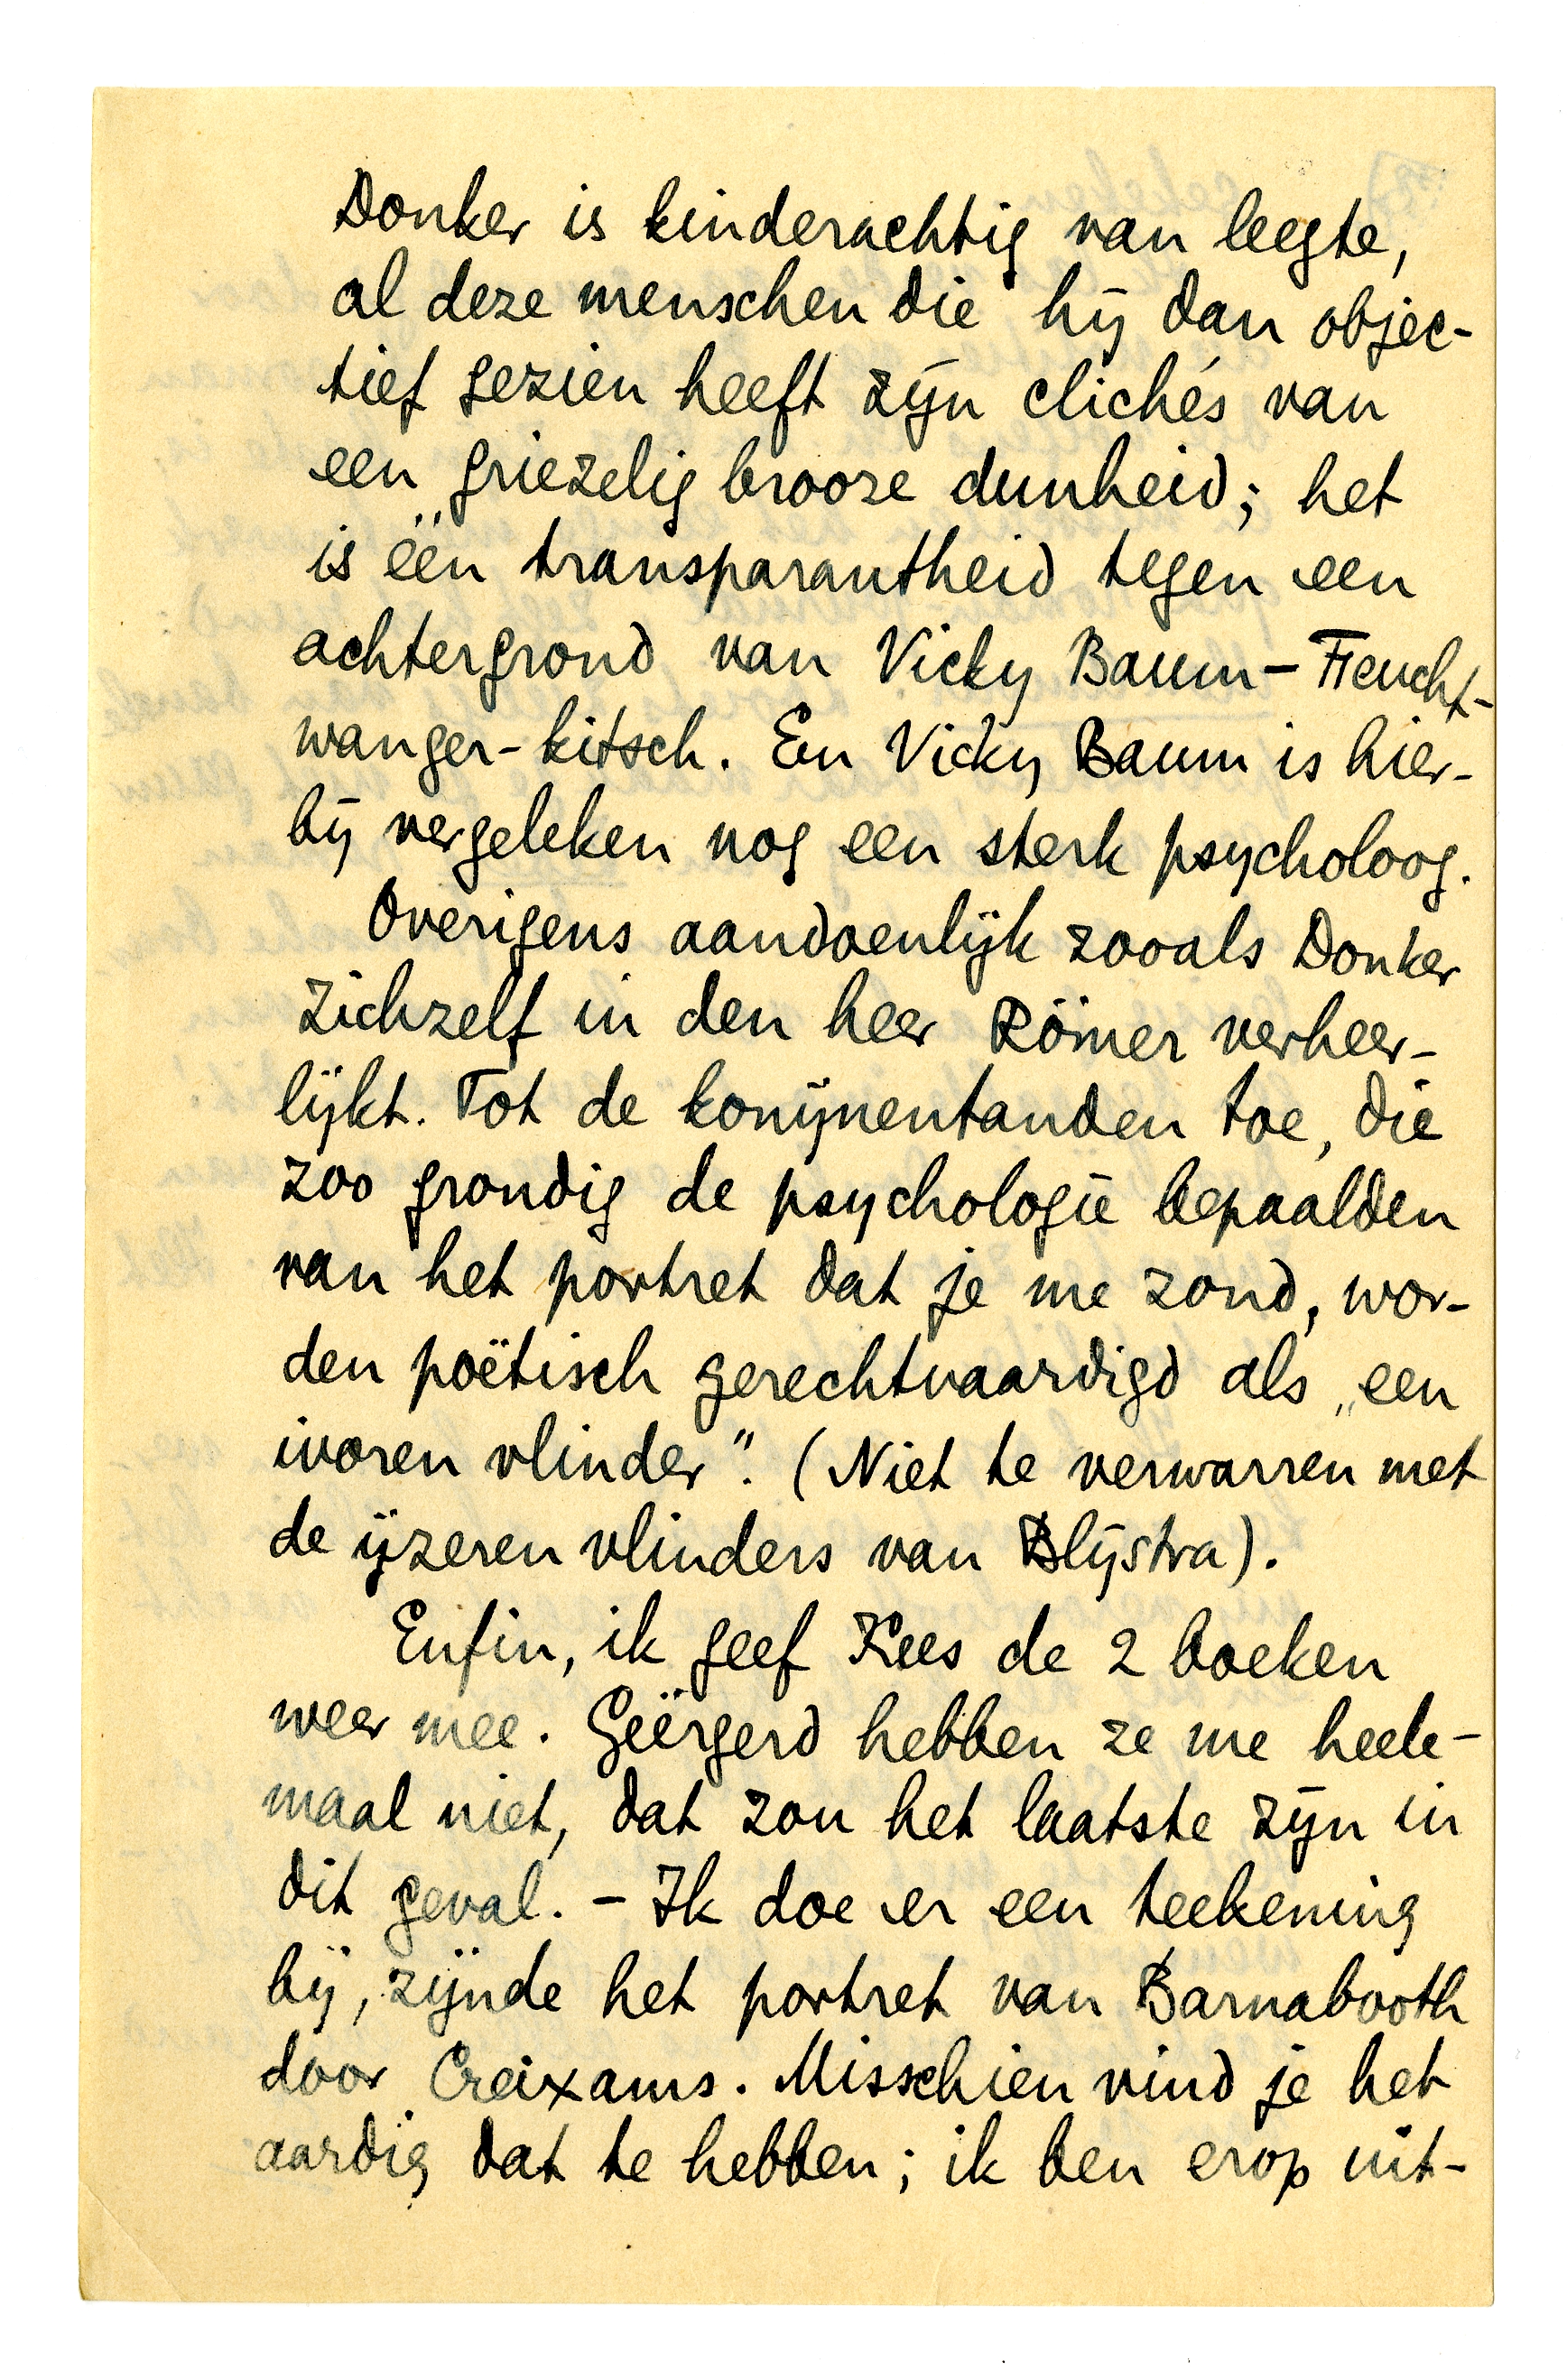 Donker is kinderachtig van leegte,
al deze menschen die hij dan objec-
tief gezien heeft zijn clichés van
een griezelig brooze dunheid; het
is één transparantheid tegen een
achtergrond van Vicky Baum-Feucht-
wanger-kitsch. En Vicky Baum is hier-
bij vergeleken nog een sterk psycholoog.
Overigens aandoenlijk zooals Donker
zichzelf in den heer Römer verheer-
lijkt. Tot de konijnentanden toe, die
zoo grondig de psychologie bepaalden
van het portret dat je me zond, wor-
den poëtisch gerechtvaardigd als „een
ivoren vlinder". (Niet te verwarren met
de ijzeren vlinders van Blijstra).
Enfin, ik geef Kees de 2 boeken
weer mee. Geërgerd hebben ze me heele-
maal niet, dat zou het laatste zijn in
dit geval. - Ik doe er een teekening
bij, zijnde het portret van Barnabooth
door Creixams. Misschien vind je het
aardig dat te hebben; ik ben erop uit-